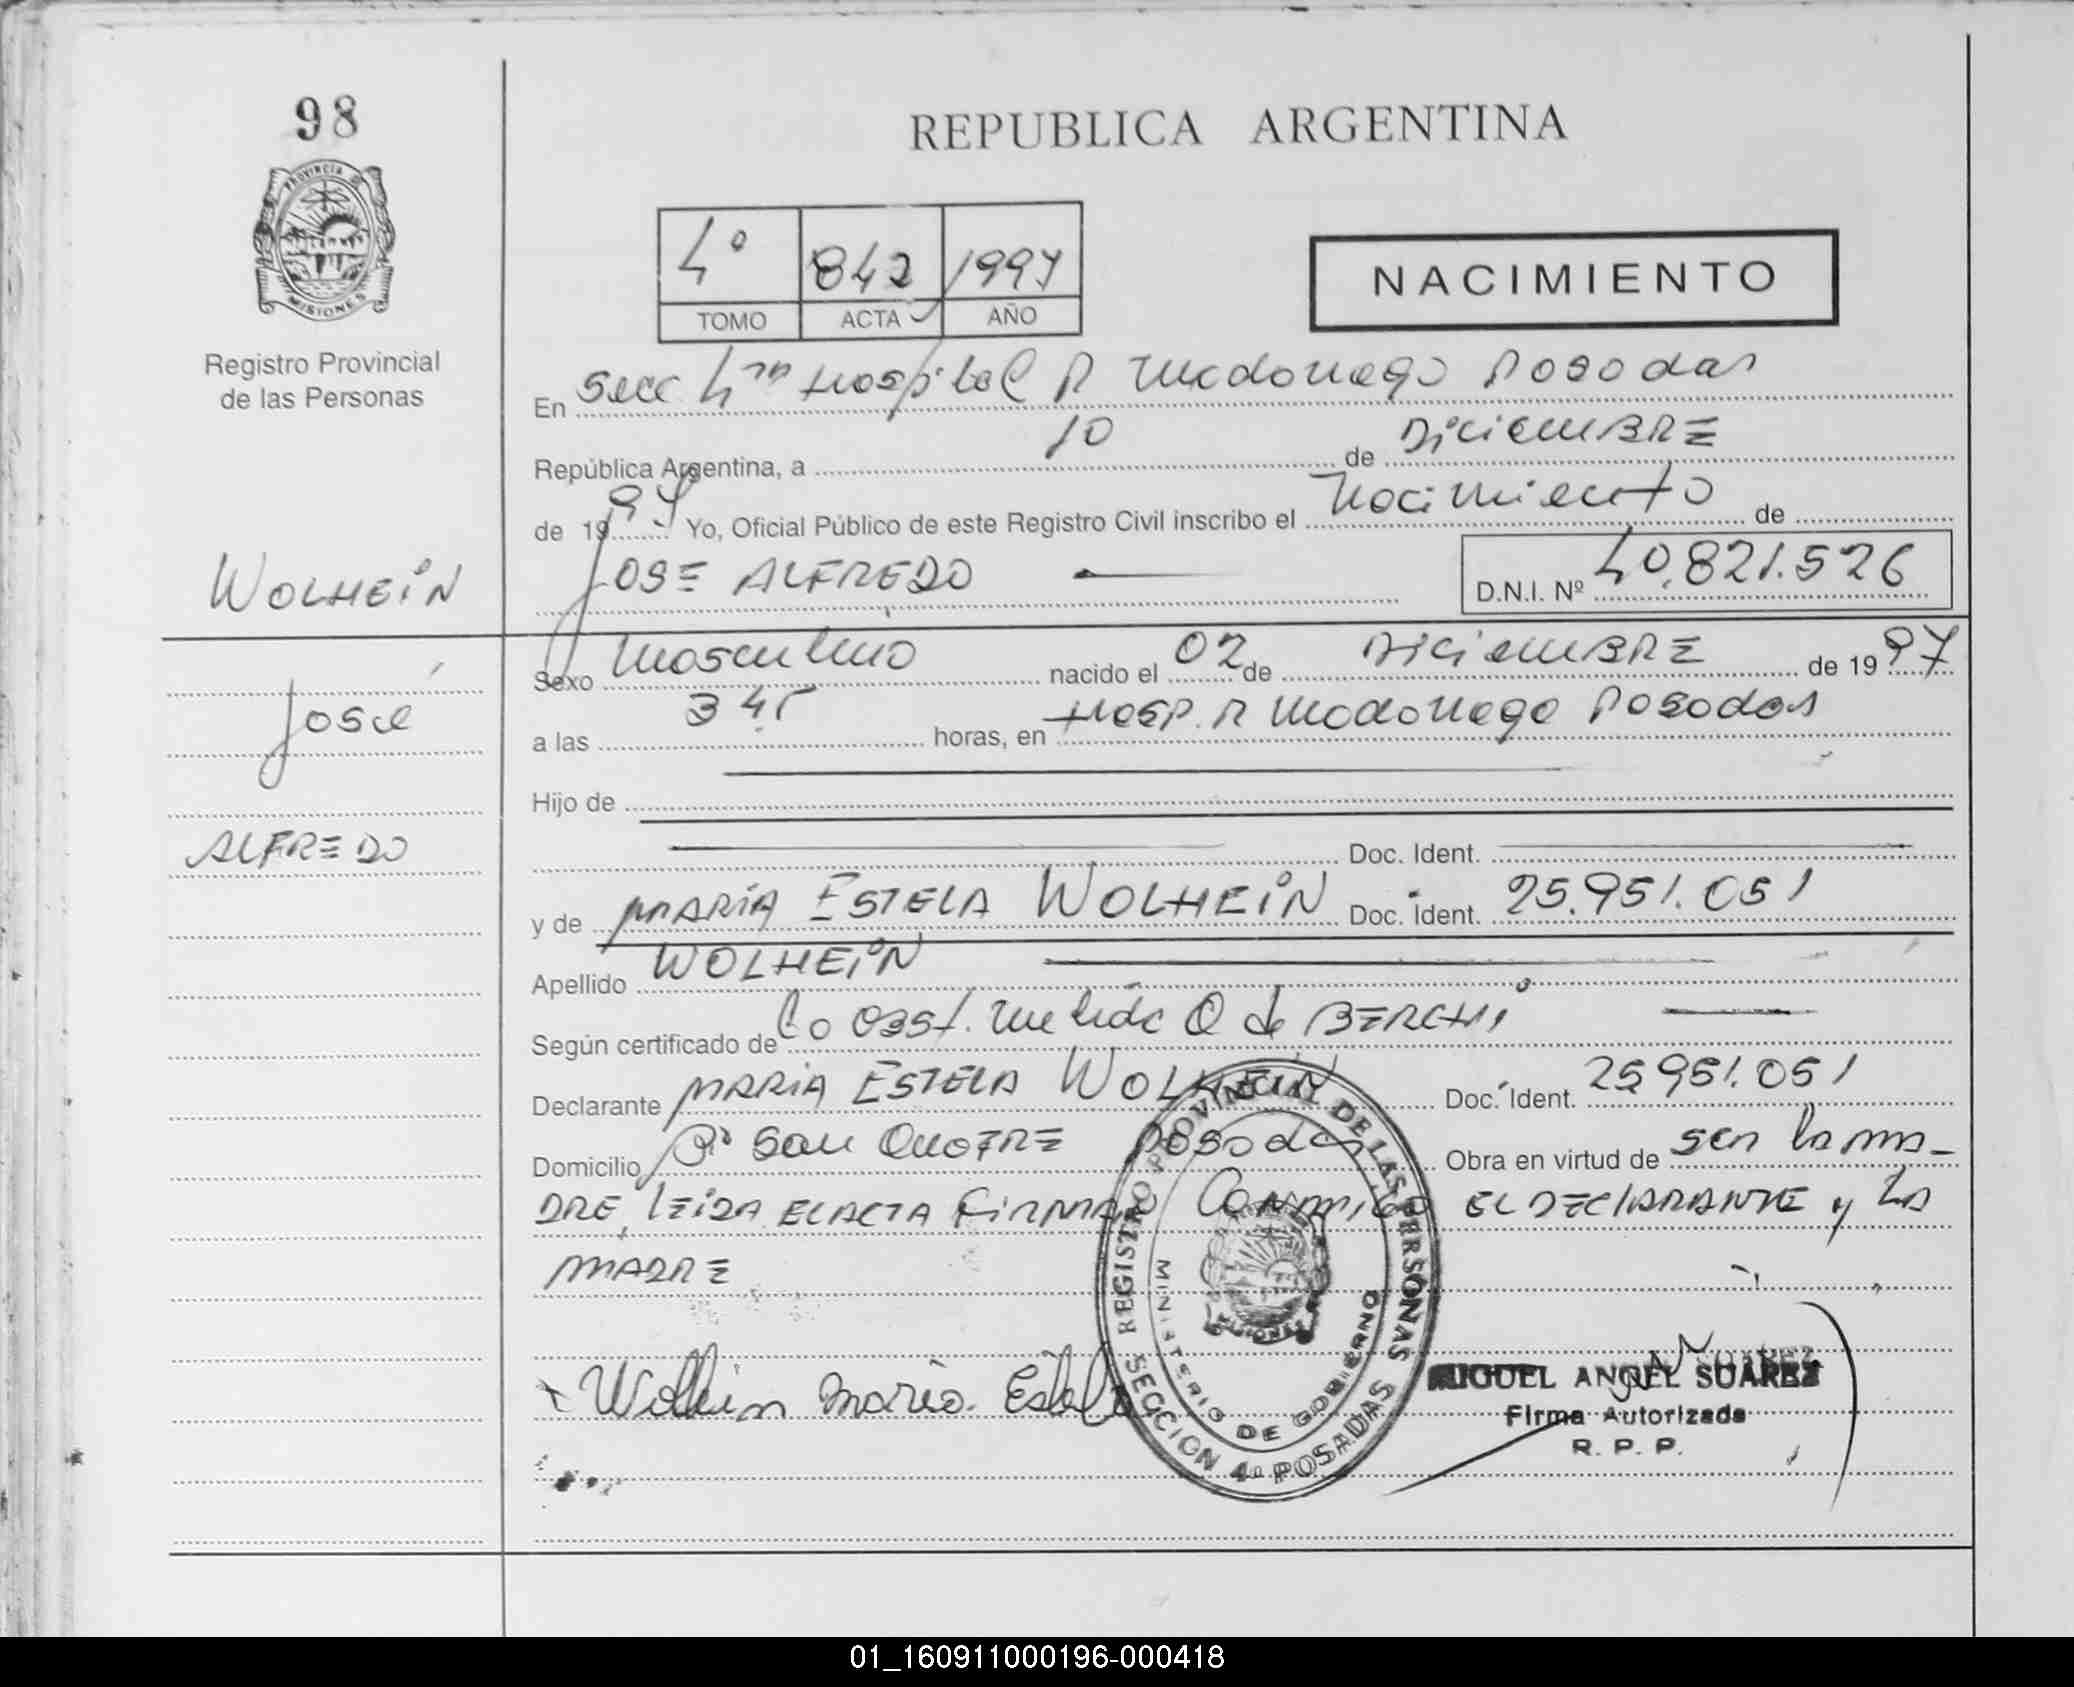 98
REPUBLICA ARGENTINA
PROVINCIA DE
MISIONES
4º 842 1997
TOMO ACTA AÑO
NACIMIENTO
Registro Provincial
de las Personas
En Secc 4ta Hospital R Madariaga Posadas
República Argentina, a 10 de DiciemBRE
de 1997 Yo, Oficial Público de este Registro Civil inscribo el Nacimiento de
WOLHEiN
JOSE ALFREDO D.N.I. Nº 40.821.526
Sexo Masculino nacido el 02 de DiciemBRE de 1997
José
a las 3 45 horas, en HOSP. R Madariaga Posadas
Hijo de
ALFREDO
Doc. Ident.
y de MARíA ESTELA WOLHEiN Doc. Ident. 25.951.051
Apellido WOLHEiN
Según certificado de la OBST. Q de BERCHi
Declarante MARiA ESTELA WOLHEiN Doc. Ident. 25951.051
Domicilio Bº San ONOFRE Posadas Obra en virtud de ser la ma-
DRE, LEiDA EL ACTA FiRMAN CONMiGO EL DECLARANTE y LA
MADRE
Wolhein Maria Estela
REGISTRO PROVINCIAL DE LAS PERSONAS
SECCION 4ª POSADAS
MINISTERIO DE GOBIERNO
MISIONES
MIGUEL ANGEL SUAREZ
Firma Autorizada
R. P. P.
01_160911000196-000418